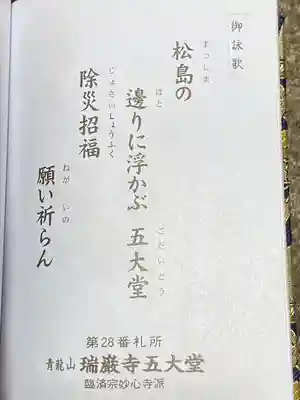 御詠歌
まつしま
松島の
ほと
邊りに浮かぶ 五大堂
ごだいどう
じょさいしょうふく
除災招福
ねが いの
願い祈らん
第28番札所
青龍山 瑞巌寺五大堂
臨済宗妙心寺派